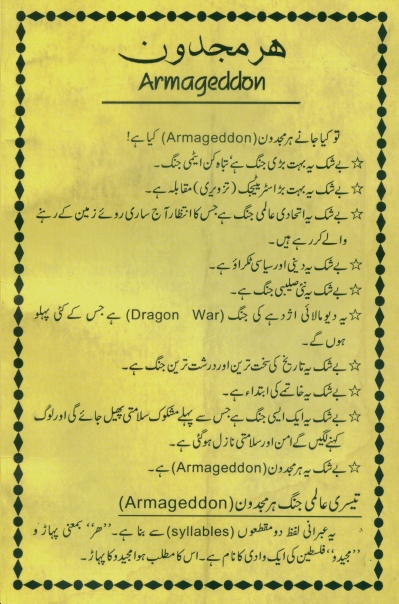 ھرمجدون
Armageddon
تو کیا جانے ہرمجدون (Armageddon) کیا ہے!
☆ بے شک یہ بہت بڑی جنگ ہے، تباہ کن ایٹمی جنگ۔
☆ بے شک یہ بہت بڑا سٹریٹیجک (تزویری) مقابلہ ہے۔
☆ بے شک یہ اتحادی عالمی جنگ ہے جس کا انتظار آج ساری روئے زمین کے رہنے
والے کر رہے ہیں۔
☆ بے شک یہ دینی اور سیاسی ٹکراؤ ہے۔
☆ بے شک یہ نئی صلیبی جنگ ہے۔
☆ یہ دیومالائی اژدہے کی جنگ (Dragon War) ہے جس کے کئی پہلو
ہوں گے۔
☆ بے شک یہ تاریخ کی سخت ترین اور درشت ترین جنگ ہے۔
☆ بے شک یہ خاتمے کی ابتداء ہے۔
☆ بے شک یہ ایک ایسی جنگ ہے جس سے پہلے مشکوک سلامتی پھیل جائے گی اور لوگ
کہنے لگیں گے امن اور سلامتی نازل ہو گئی ہے۔
☆ بے شک یہ ہرمجدون (Armageddon) ہے۔
تیسری عالمی جنگ ہرمجدون (Armageddon)
یہ عبرانی لفظ دو مقطعوں (syllables) سے بنا ہے۔ ’’ھر‘‘ بمعنی پہاڑ و
’’مجیدو‘‘ فلسطین کی ایک وادی کا نام ہے۔ اس کا مطلب ہوا مجیدو کا پہاڑ۔